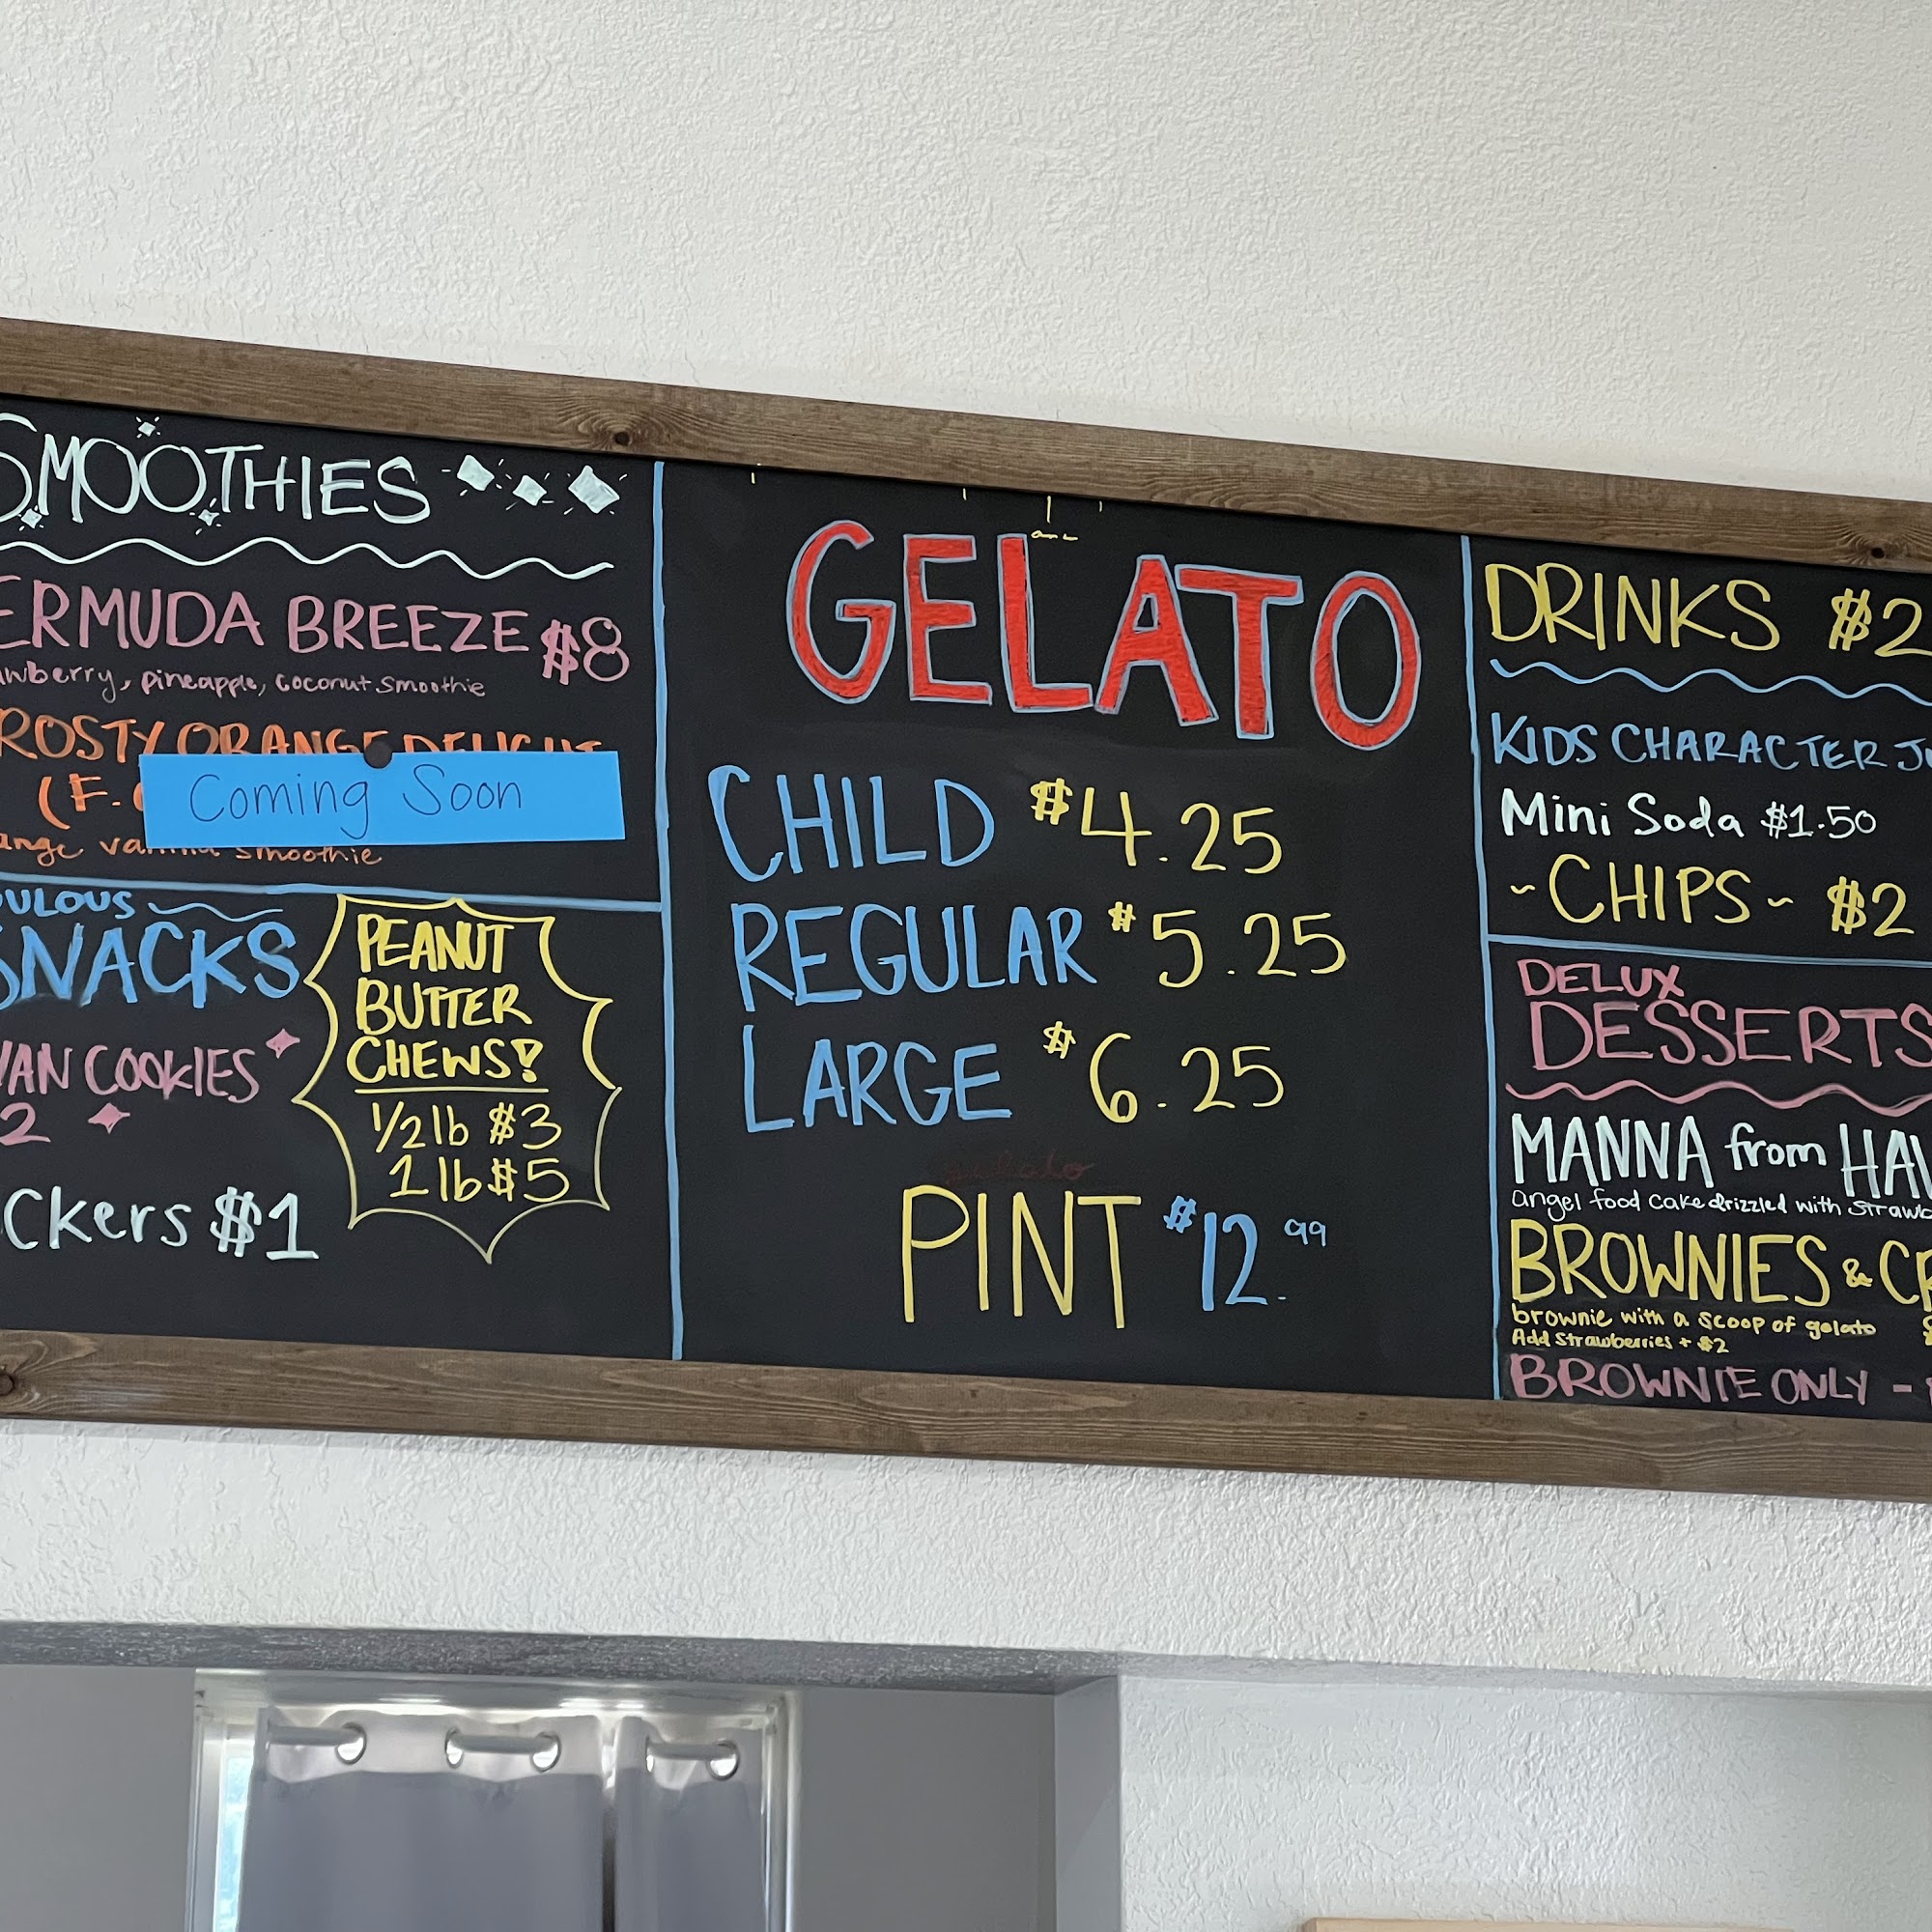 SMOOTHIES
ERMUDA BREEZE $8
wberry, pineapple, coconut smoothie
ROSTY ORANGE DELIGHT
(F.
Coming Soon
ange vanilla smoothie
ULOUS
SNACKS
VAN COOKIES
2
ckers $1
PEANUT
BUTTER
CHEWS!
1/2 lb $3
1 lb $5
GELATO
CHILD $4.25
REGULAR $5.25
LARGE $6.25
PINT $12.99
DRINKS $2
KIDS CHARACTER J
Mini Soda $1.50
~CHIPS~ $2
DELUX
DESSERTS
MANNA from HAV
angel food cake drizzled with strawb
BROWNIES & CR
brownie with a scoop of gelato
Add Strawberries + $2
BROWNIE ONLY -